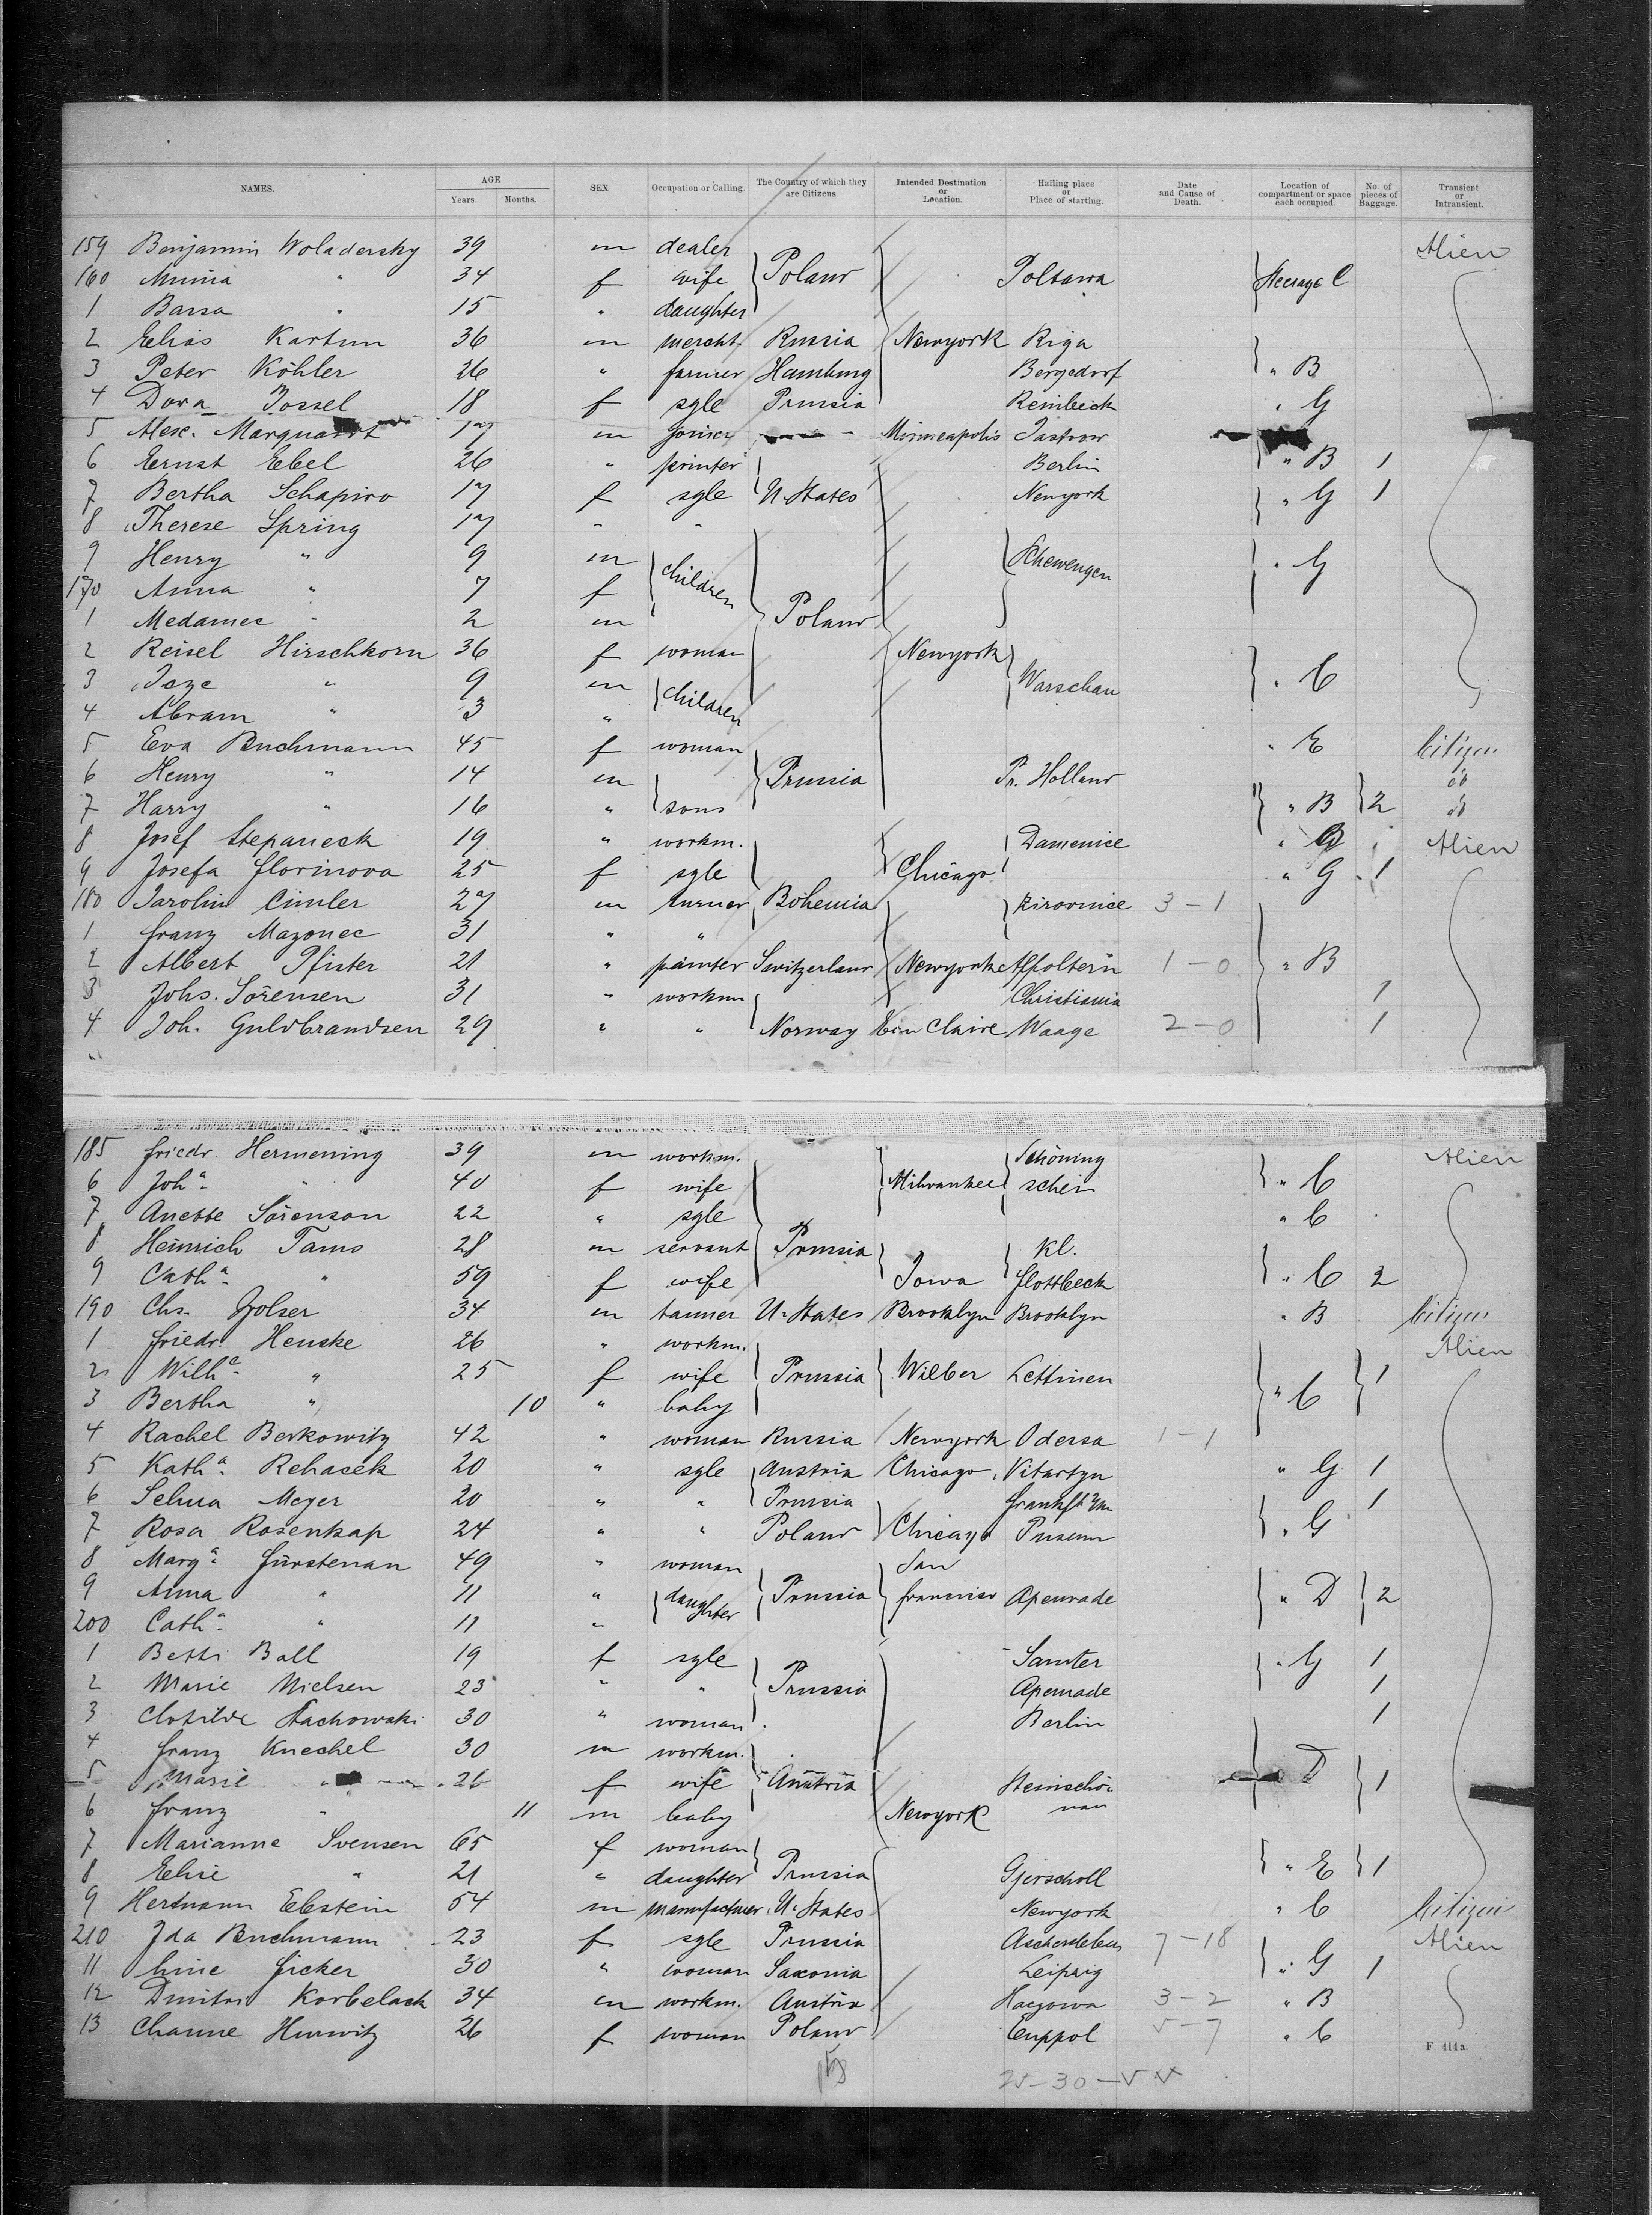 NAMES. AGE Years. Months. SEX Occupation or Calling. The Country of which they are Citizens. Intended Destination or Location. Hailing place or Place of starting. Date and Cause of Death. Location of compartment or space each occupied. No. of pieces of Baggage. Transient or Intransient.
159 Benjamin Woladersky 39 m dealer Alien
160 Minna " 34 f wife Poland Poltawa Steerage C
1 Bassa " 15 " daughter
2 Elias Kartun 36 m mercht. Russia Newyork Riga
3 Peter Köhler 26 " farmer Hamburg Bergedorf " B
4 Dora Jossel 18 f sgle Prussia Reinbeck " G
5 Alex. Marquardt 17 m joiner Minneapolis Jastrow
6 Ernst Ebel 26 " printer Berlin " B 1
7 Bertha Schapiro 17 f sgle U. States Newyork " G 1
8 Therese Spring 17 " "
9 Henry " 9 m children Schewengen " G
170 Anna " 7 f
1 Medames " 2 m Poland
2 Reisel Hirschkorn 36 f woman Newyork
3 " 9 m children Warschau " C
4 Abram " 3 "
5 Eva Buchmann 45 f woman " E Citizen
6 Henry " 14 m Prussia Pr. Holland do
7 Harry " 16 " sons " B 2 do
8 Josef Stepaneck 19 " workm. Damenice " B Alien
9 Josefa Florinova 25 f sgle Chicago " G 1
180 Jarolin Cimler 27 m turner Bohemia Zirovnice 3 - 1
1 Franz Mazonec 31 " "
2 Albert Pfister 21 " painter Switzerland Newyork Affoltern 1 - 0 " B
3 Johs. Sörensen 31 " workm Christiania 1
4 Joh. Guldbrandsen 29 " " Norway Eau Claire Waage 2 - 0 1
"
185 Friedr. Hermening 39 m workm. Schöning Alien
6 Joha. " 40 f wife Milwaukee schein " C
7 Anette Sörenson 22 " sgle " C
8 Heinrich Tams 28 m servant Prussia Kl.
9 Catha. " 59 f wife Iowa Flottbeck " C 2
190 Chs. Holser 34 m tanner U. States Brooklyn Brooklyn " B Citizen
1 Friedr. Henske 26 " workm. Alien
2 Wilha. " 25 f wife Prussia Wilber Lettinen 1
3 Bertha " 10 " baby " C
4 Rachel Berkowitz 42 " woman Russia Newyork Odessa 1 - 1
5 Katha. Rehacek 20 " sgle Austria Chicago Vitartyn " G 1
6 Selma Meyer 20 " " Prussia Frankft a/m 1
7 Rosa Rosenkap 24 " " Poland Chicago Pusenn " G
8 Marga. Fürstenau 49 " woman San
9 Anna " 11 " daughter Prussia francisco Apenrade " D 2
200 Catha. " 11 "
1 Betti Ball 19 f sgle Samter " G 1
2 Marie Nielsen 23 " " Prussia Apenrade 1
3 Clotilde Stachowski 30 " woman Berlin 1
4 Franz Knechel 30 m workm.
5 Marie " 26 f wife Austria Steinschö- " D 1
6 Franz " 11 m baby Newyork nau
7 Marianne Svensen 65 f woman
8 Elise " 21 " daughter Prussia Gjerscholl " E 1
9 Hermann Ebstein 54 m manufacturer U. States Newyork " C Citizen
210 Ida Buchmann 23 f sgle Prussia Aschersleben 7 - 18 Alien
11 Line Ficker 30 " woman Saxonia Leipzig " G 1
12 Dmitri Korbelack 34 m workm. Austria Hayowa 3 - 2 " B
13 Channe Hurwitz 26 f woman Poland Euppol 5 - 7 " C
F. 414a.